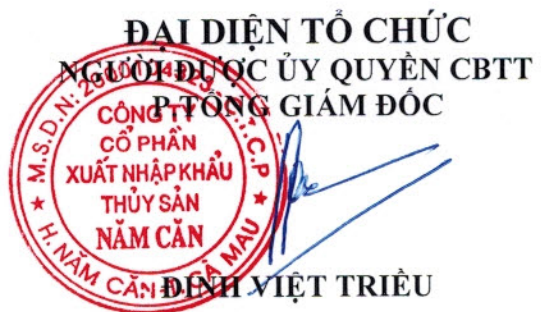 ĐẠI DIỆN TỔ CHỨC
NGƯỜI ĐƯỢC ỦY QUYỀN CBTT
P.TỔNG GIÁM ĐỐC
M.S.D.N:
C.T.C.P
CÔNG TY
CỔ PHẦN
XUẤT NHẬP KHẨU
THỦY SẢN
NĂM CĂN
H. NĂM CĂN
CÀ MAU
ĐINH VIỆT TRIỀU